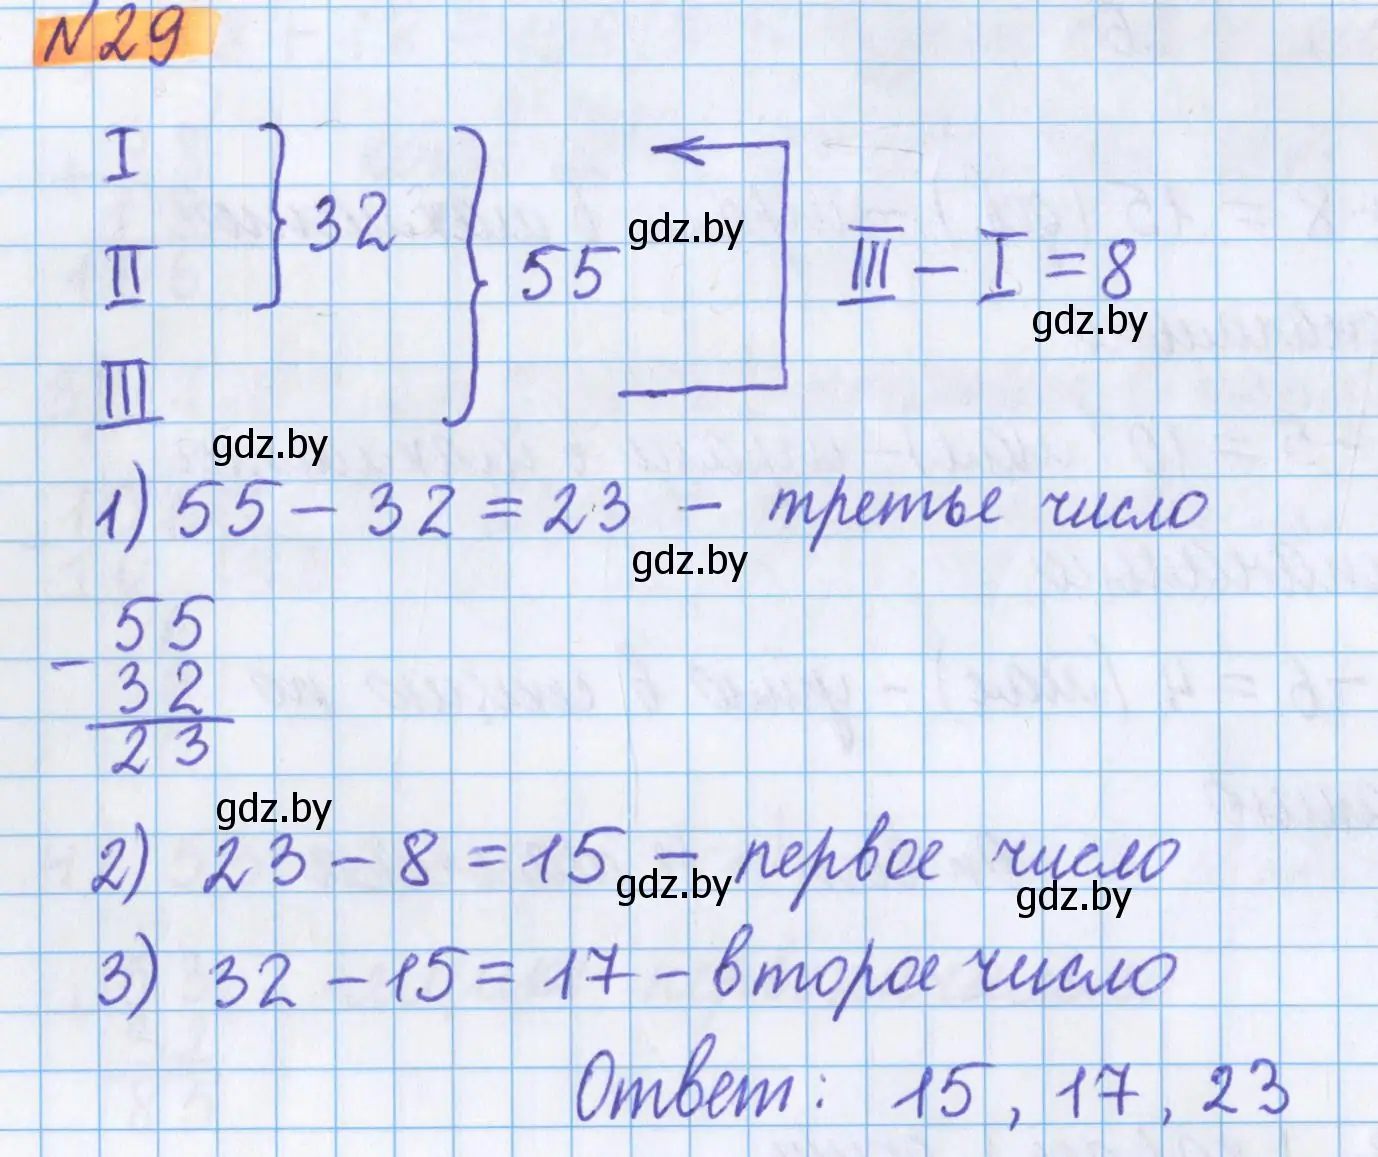 №29
I
II
III
32
55
III - I = 8
gdz.by
gdz.by
gdz.by
1) 55 - 32 = 23 - третье число
gdz.by
- 55
32
23
gdz.by
2) 23 - 8 = 15 - первое число
gdz.by
gdz.by
3) 32 - 15 = 17 - второе число
Ответ: 15, 17, 23